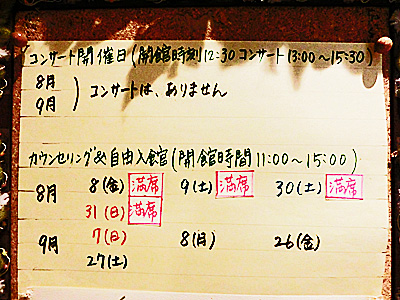 コンサート開催日(開館時刻12:30 コンサート13:00～15:30)
8月
9月
コンサートは、ありません
カウンセリング&自由入館(開館時間11:00～15:00)
8月 8(金) 満席 9(土) 満席 30(土) 満席
31(日) 満席
9月 7(日) 8(月) 26(金)
27(土)